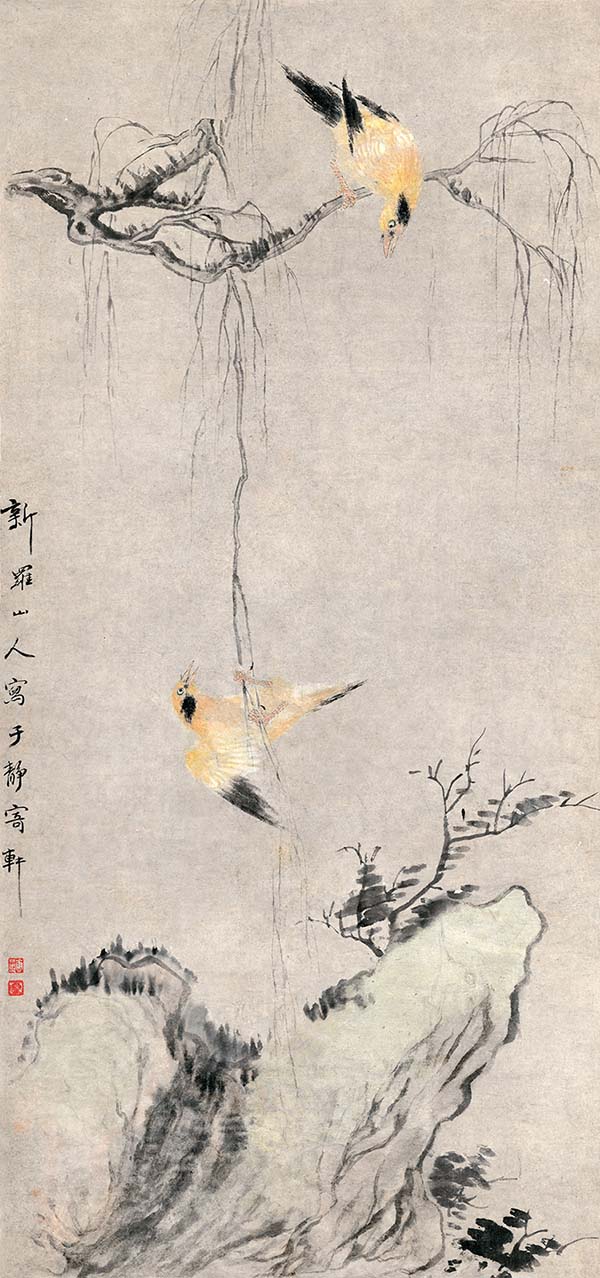 新羅山人寫于靜寄軒